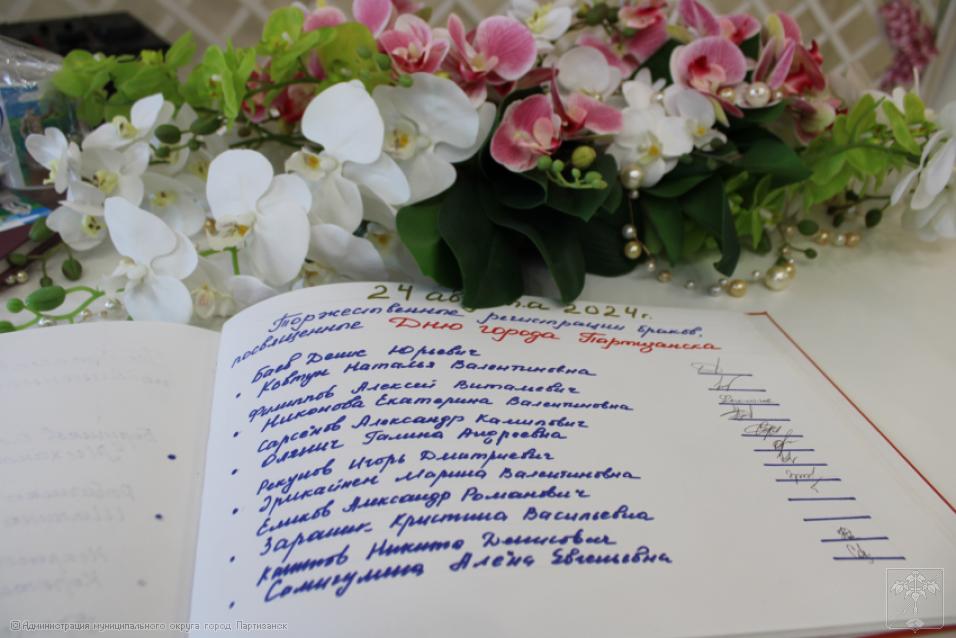 24 августа 2024г.
Торжественные регистрации браков,
посвященные Дню города Партизанска
Баев Денис Юрьевич
• Ковтун Наталья Валентиновна
Филиппов Алексей Витальевич
• Никонова Екатерина Валентиновна
Сарсёнов Александр Камилович
• Олянич Галина Андреевна
Рекунов Игорь Дмитриевич
• Эрикайнен Марина Валентиновна
Еликов Александр Романович
• Кристина Васильевна
Никита Денисович
• Алёна Евгеньевна
Администрация муниципального округа город Партизанск